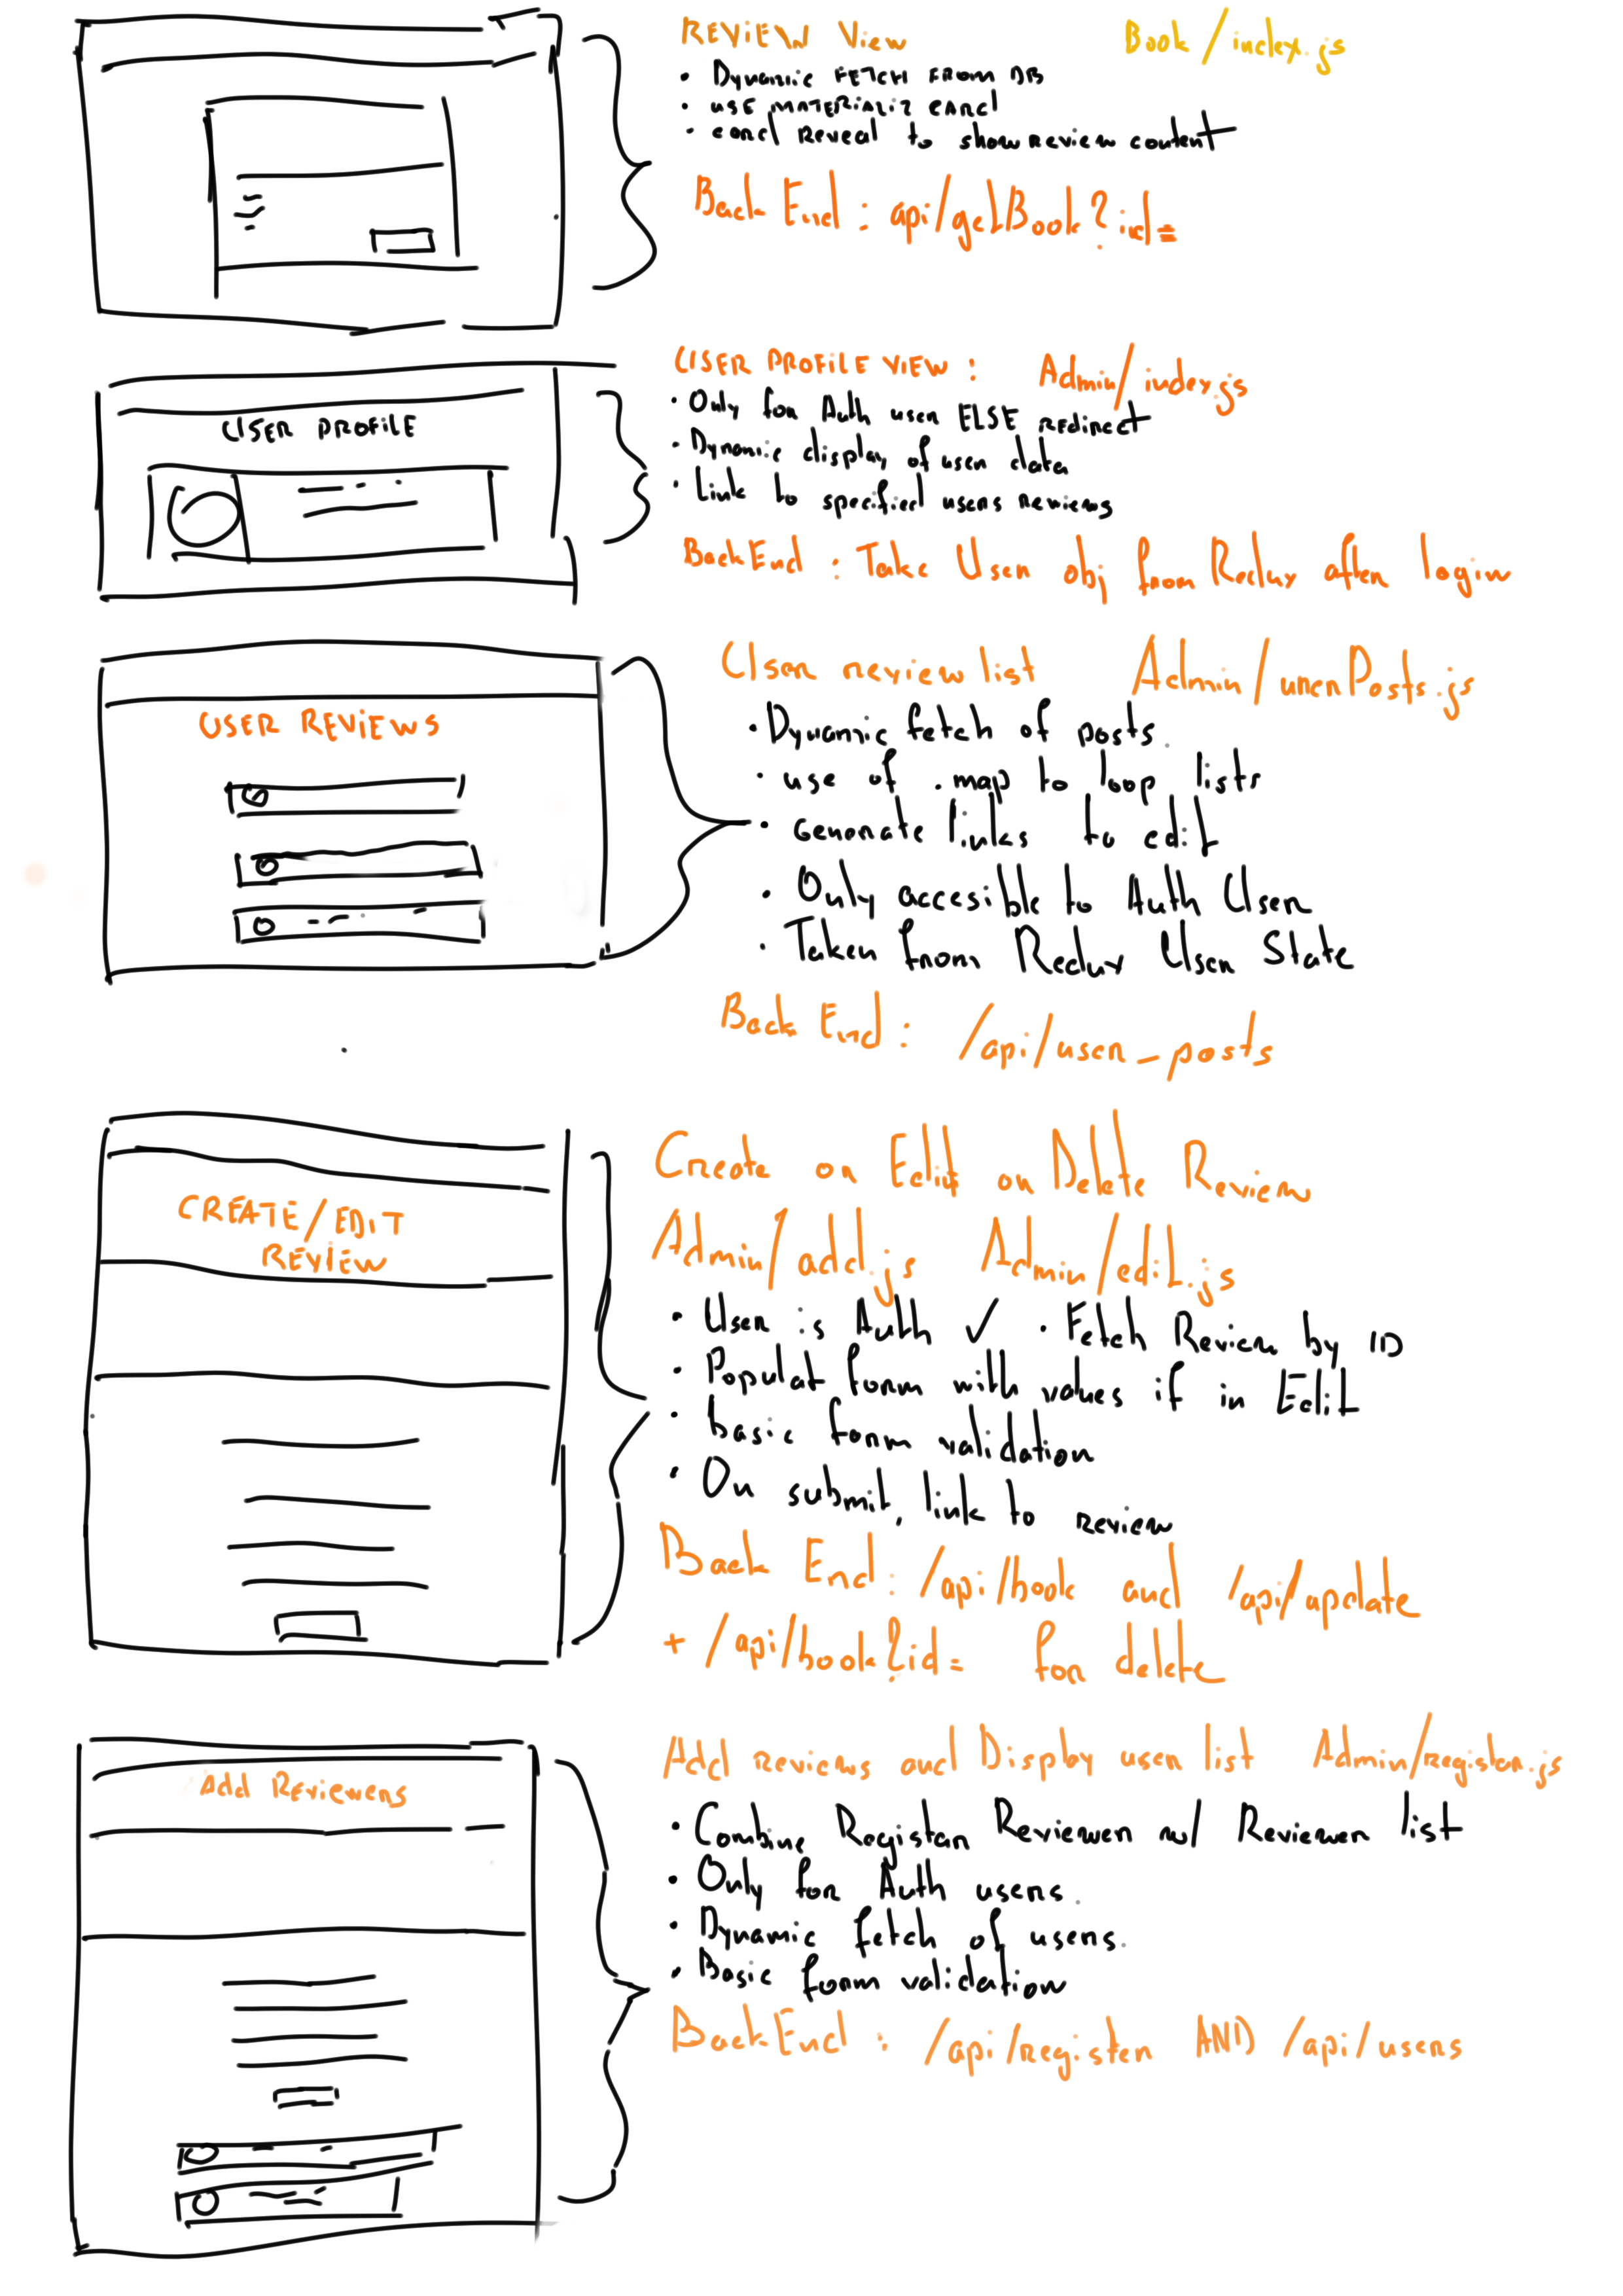 REVIEW View Book/index.js
• Dynamic FETCH FROM DB
• USE MATERIALIZ card
• card Reveal to show review content
Back End : api/getBook?id=
USER PROFILE VIEW : Admin/index.js
• Only for Auth user ELSE REDirect
USER PROFILE
• Dynamic display of user data
• Link to specified users reviews
BackEnd : Take User obj from Redux after login
User review list Admin/userPosts.js
USER REVIEWS
• Dynamic fetch of posts.
• use of .map to loop lists
• Generate links to edit
• Only accesible to Auth User
• Taken from Redux User State
Back End : /api/user_posts
Create or Edit or Delete Review
CREATE/EDIT
REVIEW
Admin/add.js Admin/edit.js
• User is Auth ✓ • Fetch Review by ID
• Populat form with values if in Edit
• basic form validation
• On submit, link to review
Back End : /api/book and /api/apdate
+ /api/book?id= for delete
Add reviews and Display user list Admin/register.js
Add Reviewers
• Combine Register Reviewer w/ Reviewer list
• Only for Auth users.
• Dynamic fetch of users.
• Basic form validation
BackEnd : /api/register AND /api/users